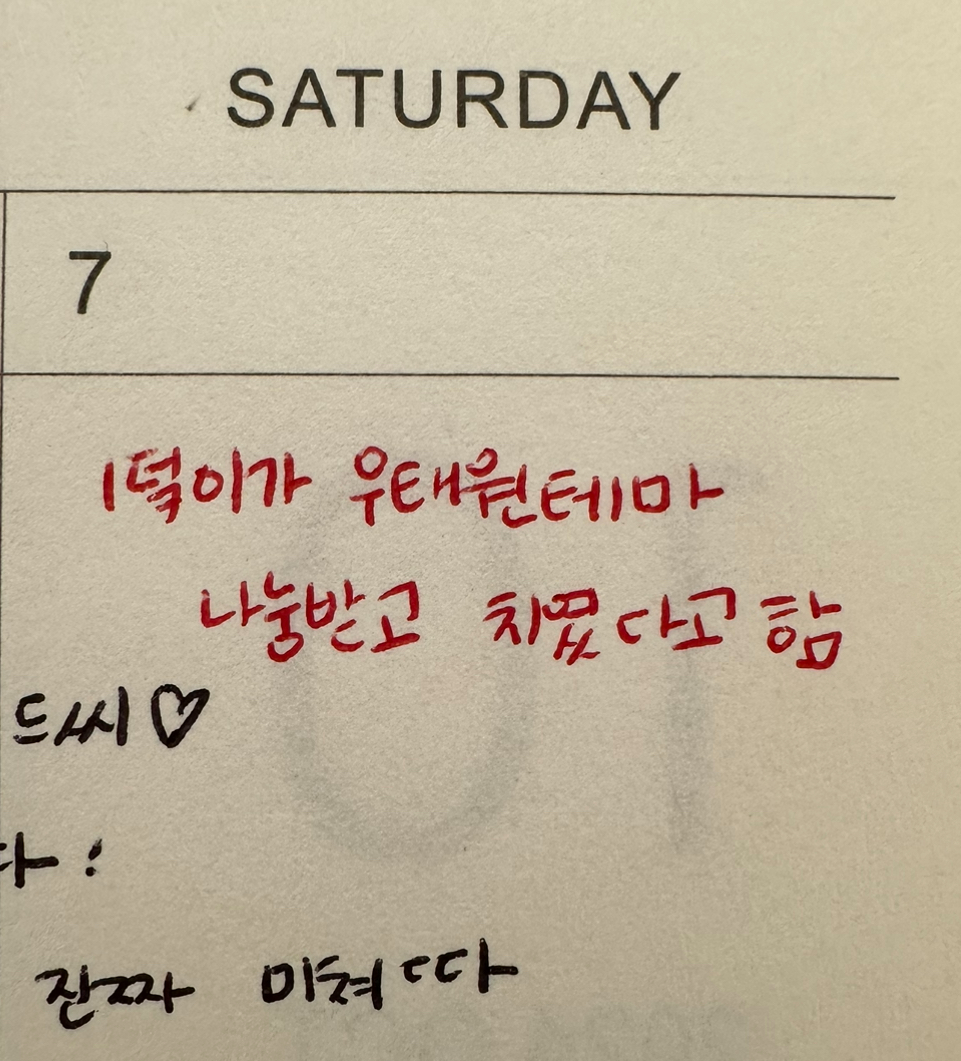 SATURDAY
7
1덕이가 우태원테마
나눔받고 치였다고 함
드씨♡
다:
진짜 미쳐따